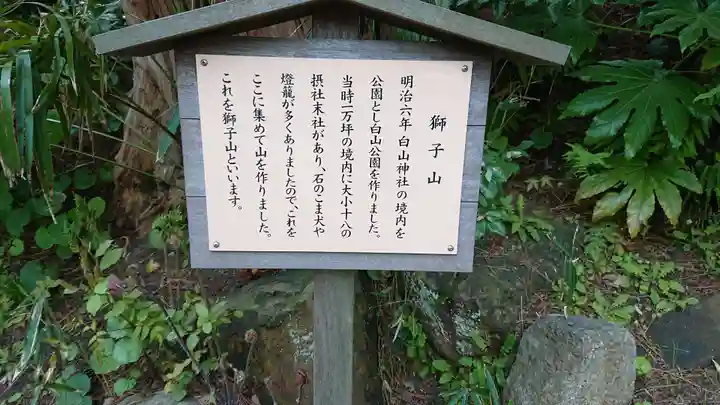 獅子山
明治六年 白山神社の境内を
公園とし白山公園を作りました。
当時一万坪の境内に大小十八の
摂社末社があり、石のこま犬や
燈籠が多くありましたので、これを
ここに集めて山を作りました。
これを獅子山といいます。